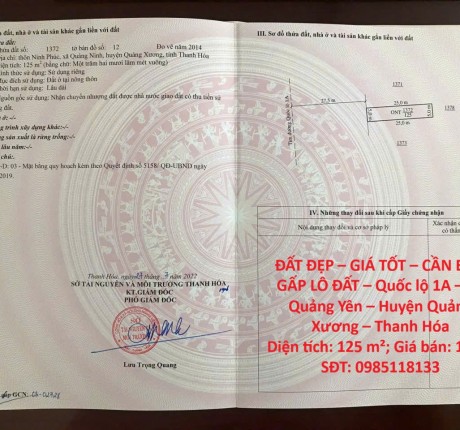 đất, nhà ở và tài sản khác gắn liền với đất
đất:
đất số: 1372 tờ bản đồ số: 12 Đo vẽ năm 2014
chỉ: thôn Ninh Phúc, xã Quảng Ninh, huyện Quảng Xương, tỉnh Thanh Hóa
tích: 125 m² (bằng chữ: Một trăm hai mươi lăm mét vuông)
thức sử dụng: Sử dụng riêng
đích sử dụng: Đất ở tại nông thôn
hạn sử dụng: Lâu dài
guồn gốc sử dụng: Nhận chuyển nhượng đất được nhà nước giao đất có thu tiền sử
ở: -/-
g trình xây dựng khác:-/-
g sản xuất là rừng trồng:-/-
lâu năm:-/-
chú:
-D: 03 - Mặt bằng quy hoạch kèm theo Quyết định số 5158/ QĐ-UBND ngày
2019.
Thanh Hóa, ngày tháng 3 năm 2022
SỞ TÀI NGUYÊN VÀ MÔI TRƯỜNG THANH HÓA
KT.GIÁM ĐỐC
PHÓ GIÁM ĐỐC
Lưu Trọng Quang
cấp GCN:
III. Sơ đồ thửa đất, nhà ở và tài sản khác gắn liền với đất
1371
Tim đường Quốc lộ 1A
25,0 m
ONT 1372
125
5,0 m
1370
25,0 m
1373
IV. Những thay đổi sau khi cấp Giấy chứng nhận
Nội dung thay đổi và cơ sở pháp lý
Xác nhận
có thẩ
ĐẤT ĐẸP – GIÁ TỐT – CẦN B
GẤP LÔ ĐẤT – Quốc lộ 1A –
Quảng Yên – Huyện Quản
Xương – Thanh Hóa
Diện tích: 125 m²; Giá bán: 1
SĐT: 0985118133